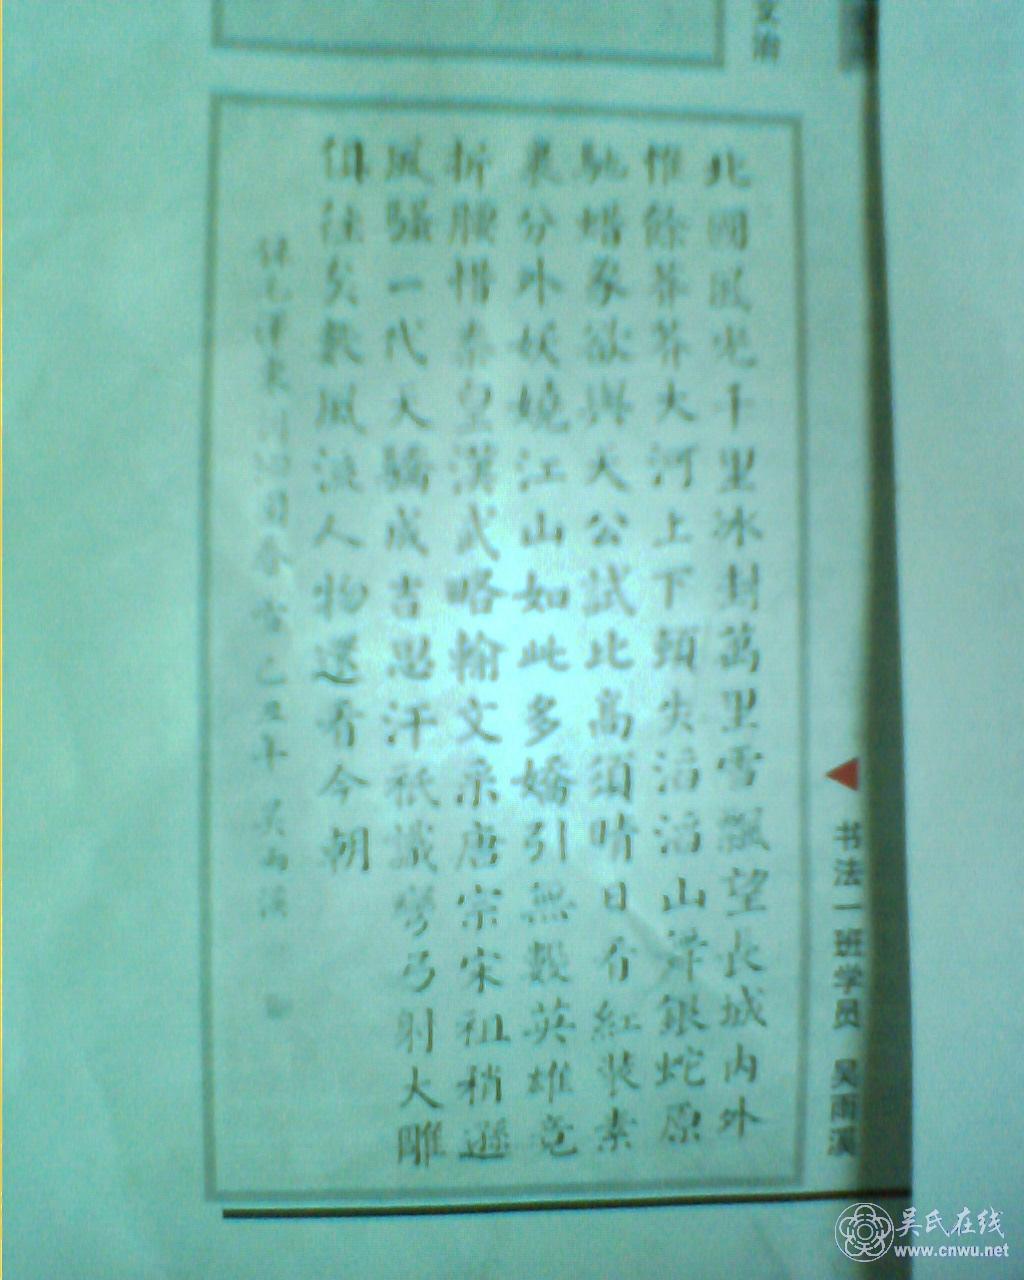 文治
北國風光千里冰封萬里雪飄望長城内外
惟餘莽莽大河上下頓失滔滔山舞銀蛇原
馳蠟象欲與天公試比高須晴日看紅裝素
裹分外妖嬈江山如此多嬌引無數英雄竞
折腰惜秦皇漢武略輸文采唐宗宋祖稍遜
風騷一代天驕成吉思汗祇識彎弓射大雕
俱往矣數風流人物還看今朝
錄毛澤東詞沁園春雪己丑年吴雨溪
书法一班学员 吴雨溪
吴氏在线
www.cnwu.net